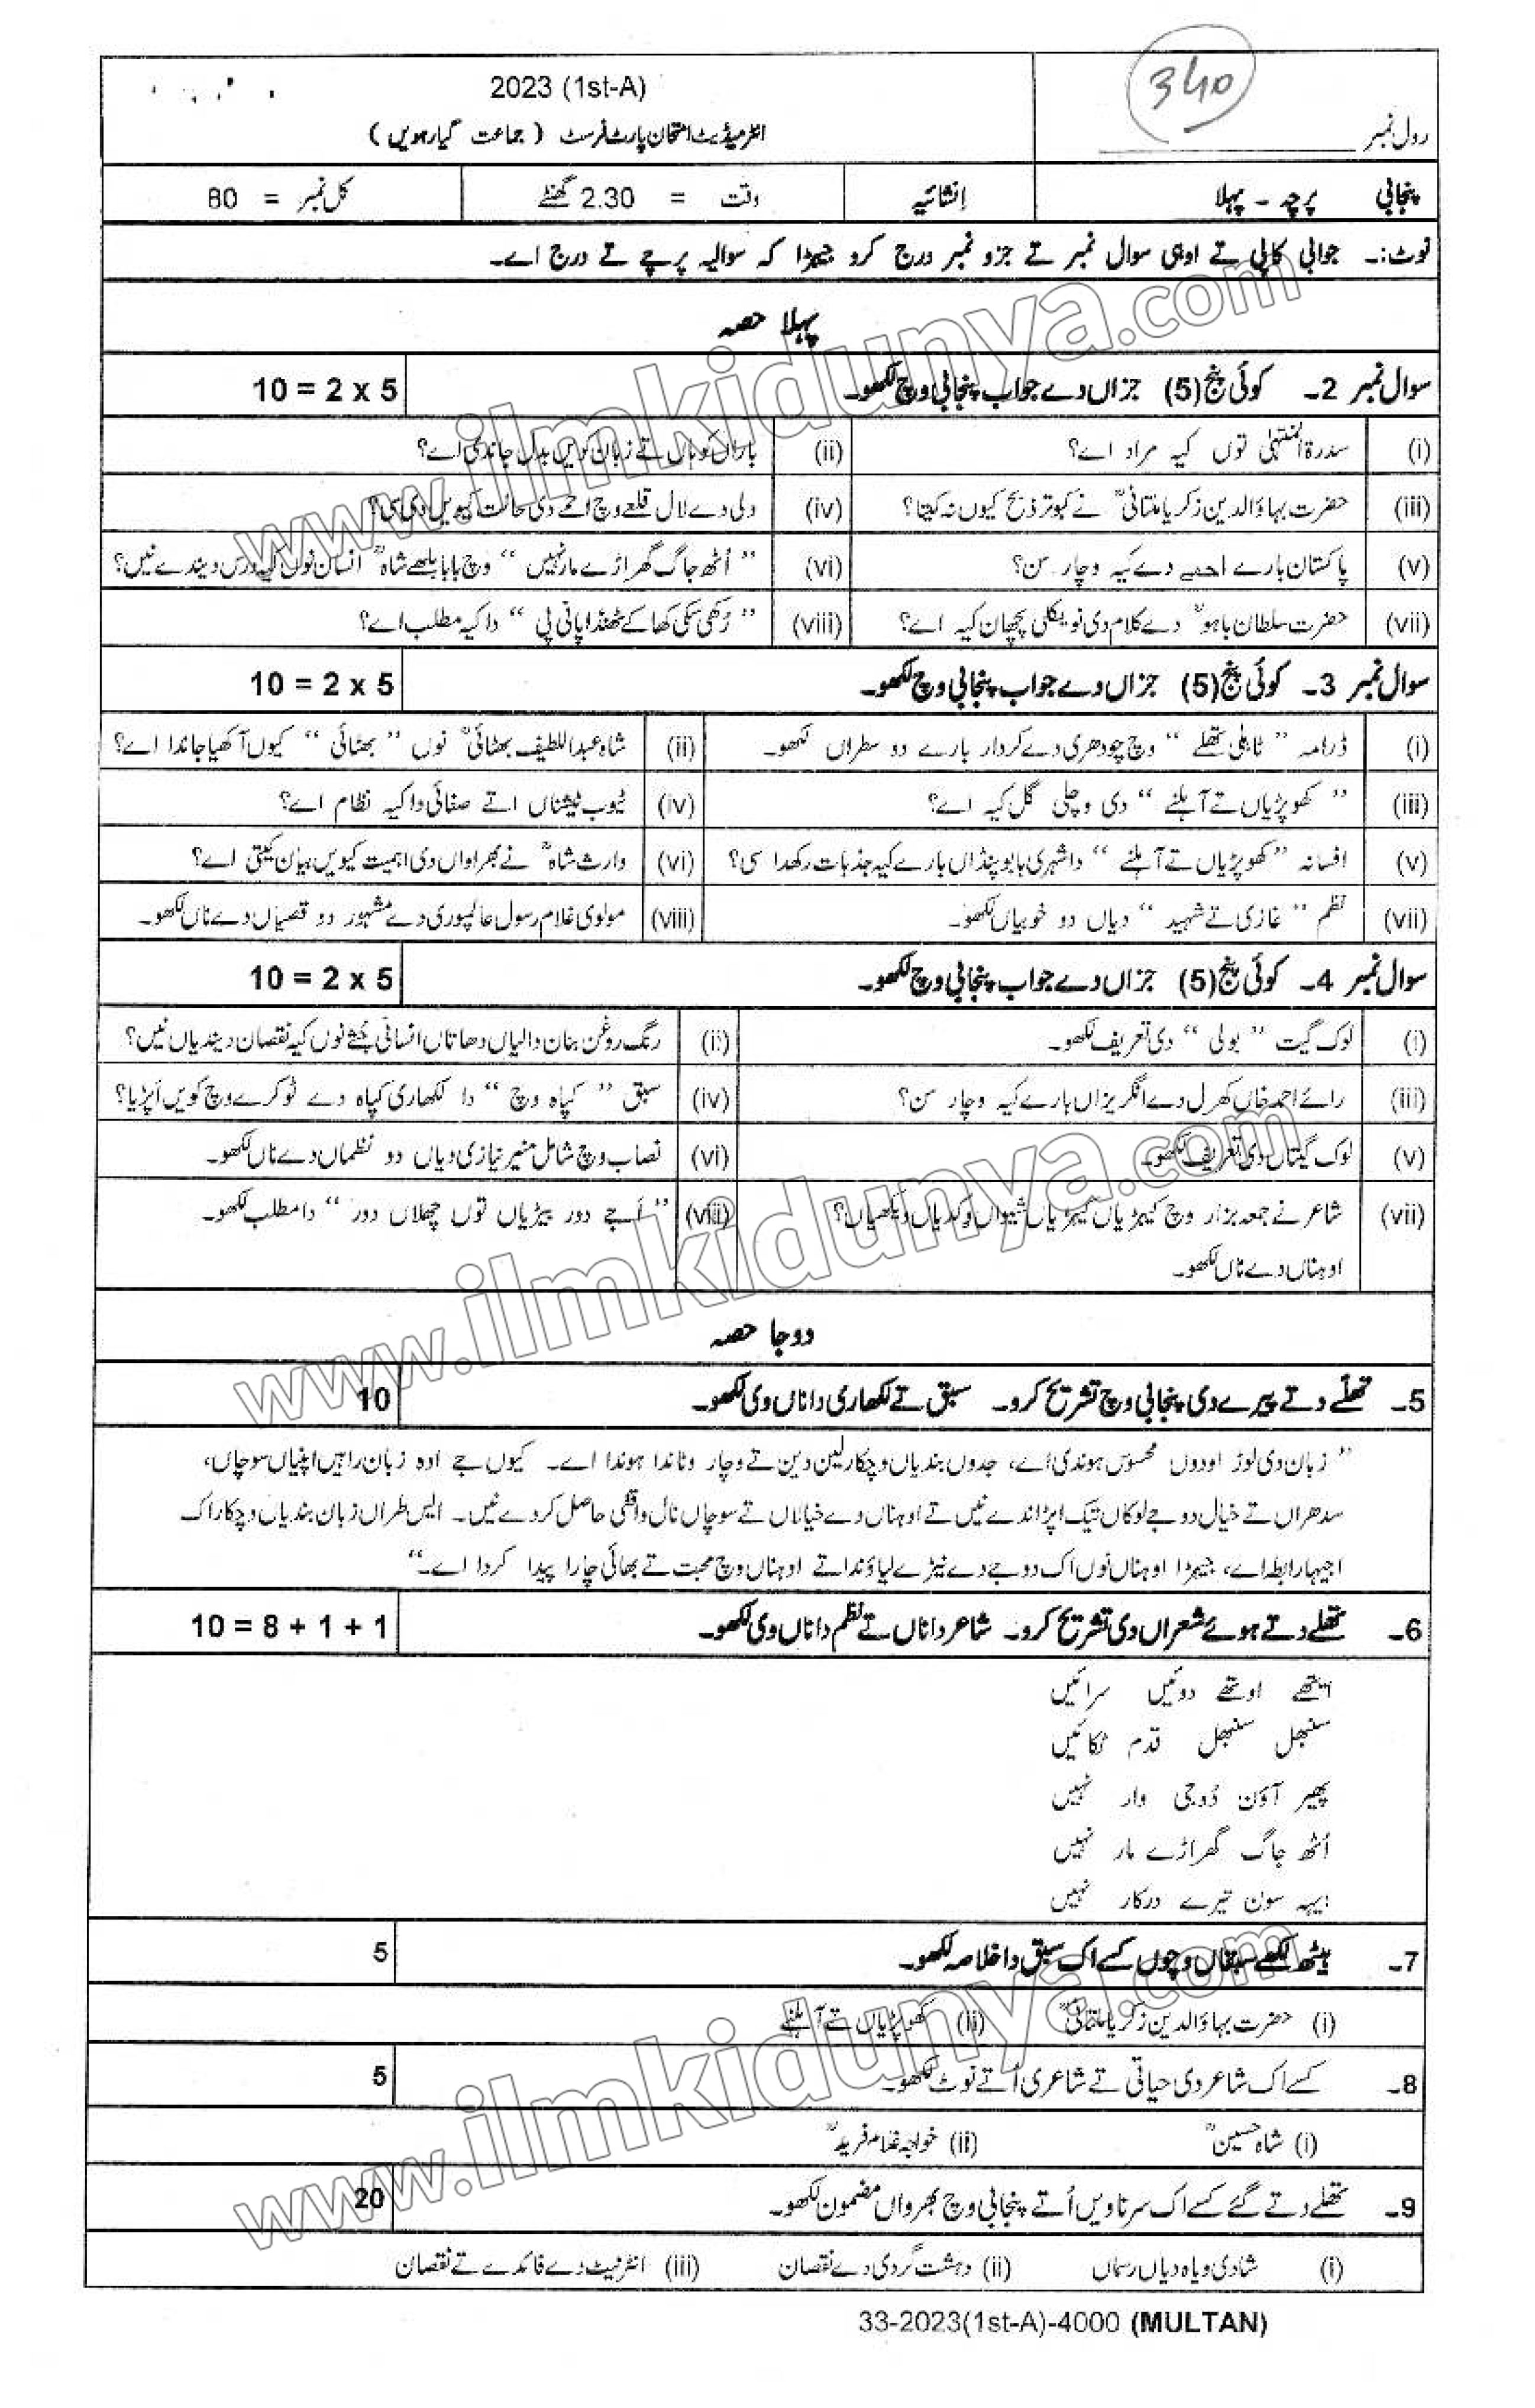 2023 (1st-A)
انٹرمیڈیٹ امتحان پارٹ فرسٹ ( جماعت گیارھویں )
340
رول نمبر
پنجابی پرچہ - پہلا
انشائیہ
وقت = 2.30 گھنٹے
کل نمبر = 80
نوٹ:۔ جوابی کاپی تے اوہی سوال نمبر تے جزو نمبر درج کرو جیہڑا کہ سوالیہ پرچے تے درج اے۔
پہلا حصہ
سوال نمبر 2۔ کوئی پنج (5) جزاں دے جواب پنجابی وچ لکھو۔ 10 = 2 x 5
(i) سدرۃ المنتہٰی توں کیہ مراد اے؟
(ii) باراں کوہاں تے زبان کویں بدل جاندی اے؟
(iii) حضرت بہاؤالدین زکریا ملتانیؒ نے کبوتر ذبح کیوں نہ کیتا؟
(iv) دلی دے لال قلعے وچ احمے دی حالت کیویں دی سی؟
(v) پاکستان بارے احمے دے کیہ وچار سن؟
(vi) ” اُٹھ جاگ گھراڑے مار نہیں “ وچ بابا بلھے شاہؒ انسان نوں کیہ درس دیندے نیں؟
(vii) حضرت سلطان باہوؒ دے کلام دی نویکلی پچھان کیہ اے؟
(viii) ” رُکھی سُکی کھا کے ٹھنڈا پانی پی “ دا کیہ مطلب اے؟
سوال نمبر 3۔ کوئی پنج (5) جزاں دے جواب پنجابی وچ لکھو۔ 10 = 2 x 5
(i) ڈرامہ ” ٹاہلی تھلے “ وچ چودھری دے کردار بارے دو سطراں لکھو۔
(ii) شاہ عبداللطیف بھٹائیؒ نوں ” بھٹائی “ کیوں آکھیا جاندا اے؟
(iii) ” کھوپڑیاں تے آہلنے “ دی وچلی گل کیہ اے؟
(iv) ٹیوب ٹیشناں اتے صفائی دا کیہ نظام اے؟
(v) افسانہ ” کھوپڑیاں تے آہلنے “ دا شہری بابو پنڈاں بارے کیہ جذبات رکھدا سی؟
(vi) وارث شاہؒ نے بھراواں دی اہمیت کیویں بیان کیتی اے؟
(vii) نظم ” غازی تے شہید “ دیاں دو خوبیاں لکھو۔
(viii) مولوی غلام رسول عالمپوری دے مشہور دو قصیاں دے ناں لکھو۔
سوال نمبر 4۔ کوئی پنج (5) جزاں دے جواب پنجابی وچ لکھو۔ 10 = 2 x 5
(i) لوک گیت ” بولی “ دی تعریف لکھو۔
(ii) رنگ روغن بنان والیاں دھاتاں انسانی جُثے نوں کیہ نقصان دیندیاں نیں؟
(iii) رائے احمد خاں کھرل دے انگریزاں بارے کیہ وچار سن؟
(iv) سبق ” کپاہ وچ “ دا لکھاری کپاہ دے ٹوکرے وچ کویں اَپڑیا؟
(v) لوک گیتاں دی تعریف لکھو۔
(vi) نصاب وچ شامل منیر نیازی دیاں دو نظماں دے ناں لکھو۔
(vii) شاعر نے جمعہ بزار وچ کیہڑیاں کیہڑیاں شیواں وکدیاں ویکھیاں؟
اوہناں دے ناں لکھو۔
(viii) ” اَجے دور بیڑیاں توں چھلاں دور “ دا مطلب لکھو۔
دوجا حصہ
5۔ تھلے دتے پیرے دی پنجابی وچ تشریح کرو۔ سبق تے لکھاری دا ناں وی لکھو۔ 10
” زبان دی لوڑ اودوں محسوس ہوندی اے، جدوں بندیاں وچکار لین دین تے وچار وٹاندا ہوندا اے۔ کیوں جے اوہ زبان راہیں اپنیاں سوچاں،
سدھراں تے خیال دوجے لوکاں تیک اپڑاندے نیں تے اوہناں دے خیالاں تے سوچاں نال واقفی حاصل کردے نیں۔ ایس طراں زبان بندیاں وچکار اک
اجیہا رابطہ اے، جیہڑا اوہناں نوں اک دوجے دے نیڑے لیاؤندا تے اوہناں وچ محبت تے بھائی چارا پیدا کردا اے۔“
6۔ تھلے دتے ہوئے شعراں دی تشریح کرو۔ شاعر دا ناں تے نظم دا ناں وی لکھو۔ 10 = 8 + 1 + 1
ایتھے اوتھے دوئیں سرائیں
سنبھل سنبھل قدم ٹکائیں
پھیر آؤن دُوجی وار نہیں
اُٹھ جاگ گھراڑے مار نہیں
ایہہ سون تیرے درکار نہیں
7۔ ہیٹھ لکھے سبقاں وچوں کسے اک سبق دا خلاصہ لکھو۔ 5
(i) حضرت بہاؤالدین زکریا ملتانیؒ (ii) کھوپڑیاں تے آہلنے
8۔ کسے اک شاعر دی حیاتی تے شاعری اُتے نوٹ لکھو۔ 5
(i) شاہ حسینؒ (ii) خواجہ غلام فریدؒ
9۔ تھلے دتے گئے کسے اک سرناویں اُتے پنجابی وچ بھرواں مضمون لکھو۔ 20
(i) شادی ویاہ دیاں رسماں (ii) دہشت گردی دے نقصان (iii) انٹرنیٹ دے فائدے تے نقصان
33-2023(1st-A)-4000 (MULTAN)
www.ilmkidunya.com
www.ilmkidunya.com
www.ilmkidunya.com